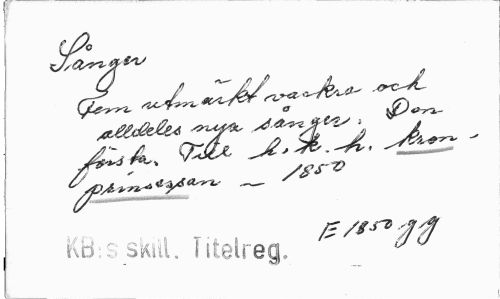 Sånger
Fem utmärkt vackra och
alldeles nya sånger. Den
första. Till h. k. h. kron-
prinsessan - 1850
E 1850 g g
KB:s skill. Titelreg.